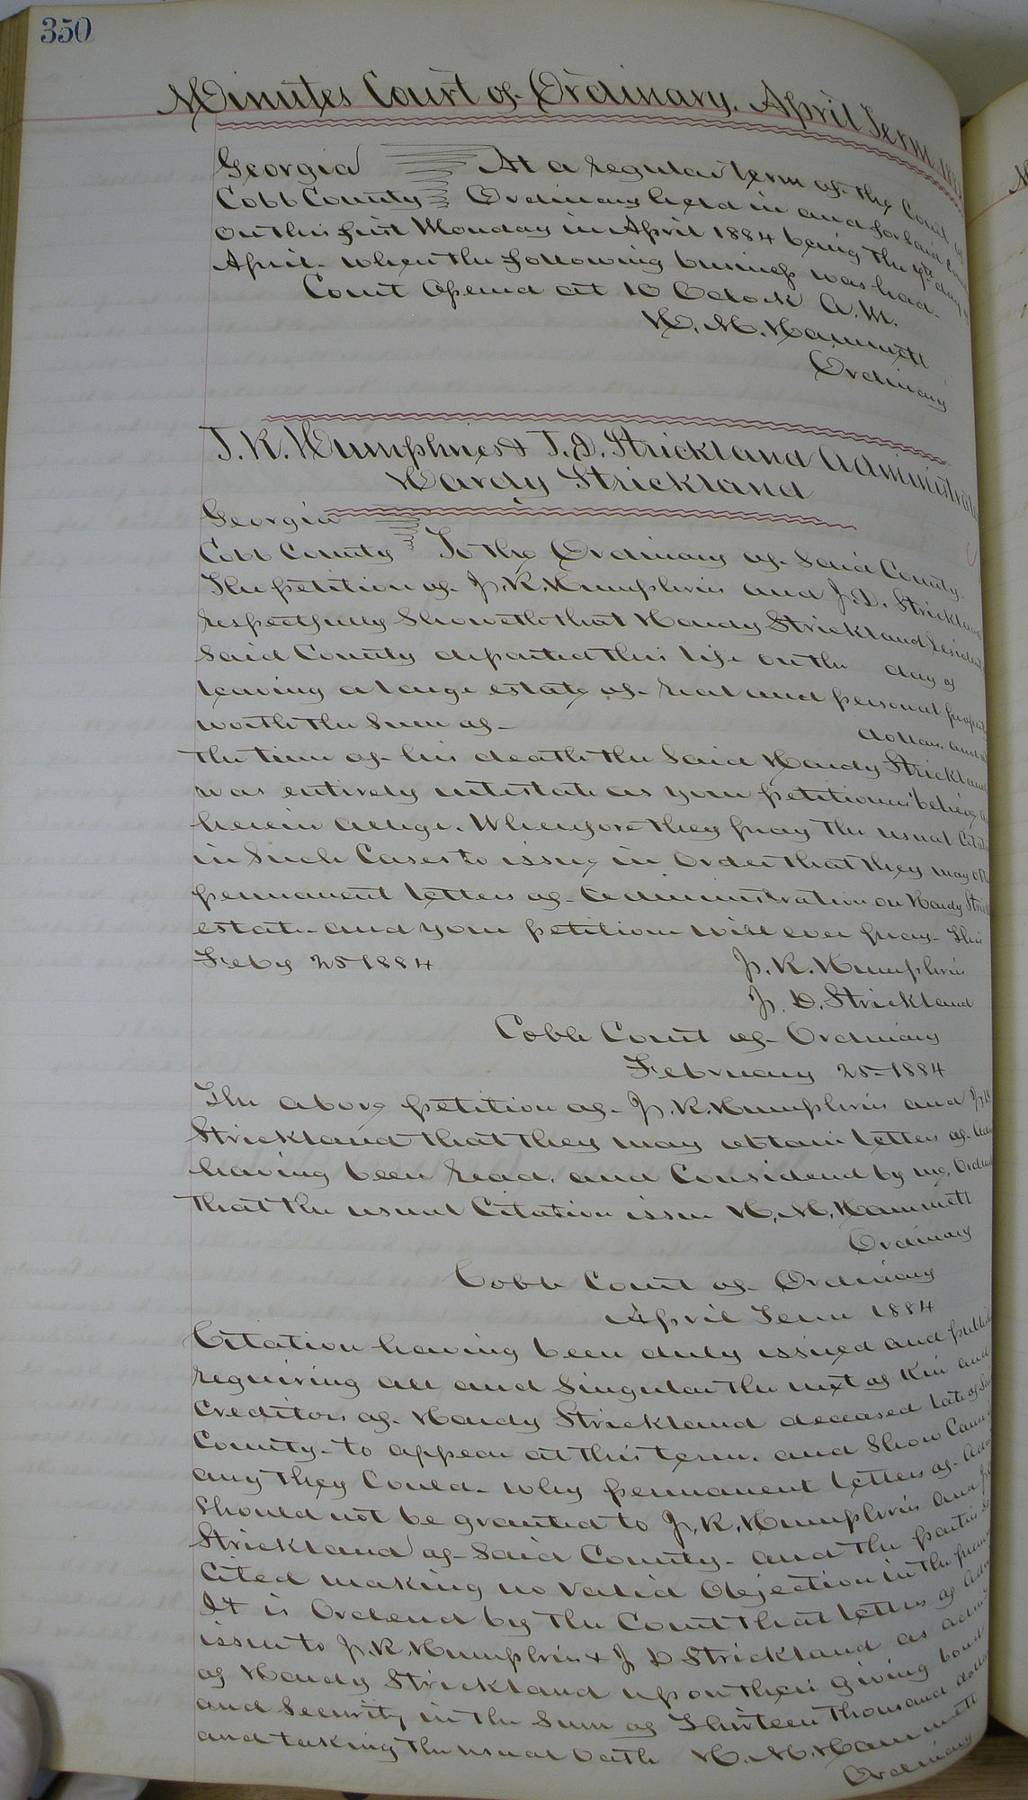 350
Minutes Court of Ordinary. April Term
Georgia At a regular term of the Court of
Cobb County Ordinary held in and for said
on this first Monday in April 1884 being the 7th day
April. when the following business was had.
Court Opend at 10 Oclock A.M.
H. M. Hammett
Ordinary
J. R. Humphries & J. D. Strickland
Hardy Strickland
Georgia
Cobb County To the Ordinary of Said County.
The petition of J. R. Humphries and J. D. Strickland
respectfully Showeth that Hardy Strickland
Said County departed this life on the day of
leaving a large estate of real and personal
worth the Sum of dollars and
the time of his death the Said Hardy Strickland
was entirely intestate as your petitioners believe
herein allege. Wherefore they pray the usual
in Such Cases to issue in Order that they may
permanent letters of Administration on Hardy
estate and your petitioners will ever pray This
Feby 25 1884 J. R. Humphries
J. D. Strickland
Cobb Court of Ordinary
February 25 1884
The above petition of J. R. Humphries and J. D.
Strickland that they may obtain letters of
having been read, and Considered by me,
that the usual Citation issue H. M. Hammett
Ordinary
Cobb Court of Ordinary
April Term 1884
Citation having been duly issued and
requiring all and Singular the next of Kin and
Creditors of Hardy Strickland deceased late of
County to appear at this term. and Show Cause
any they Could. why permanent letters of
Should not be granted to J. R. Humphries and
Strickland of Said County. and the parties
Cited making no valid Objection in the
It is Orderd by the Court that letters of
issue to J. R. Humphries & J D Strickland as
of Hardy Strickland upon their giving bond
and Security in the Sum of Thirteen Thousand
and taking the usual Oath H. M. Hammett
Ordinary